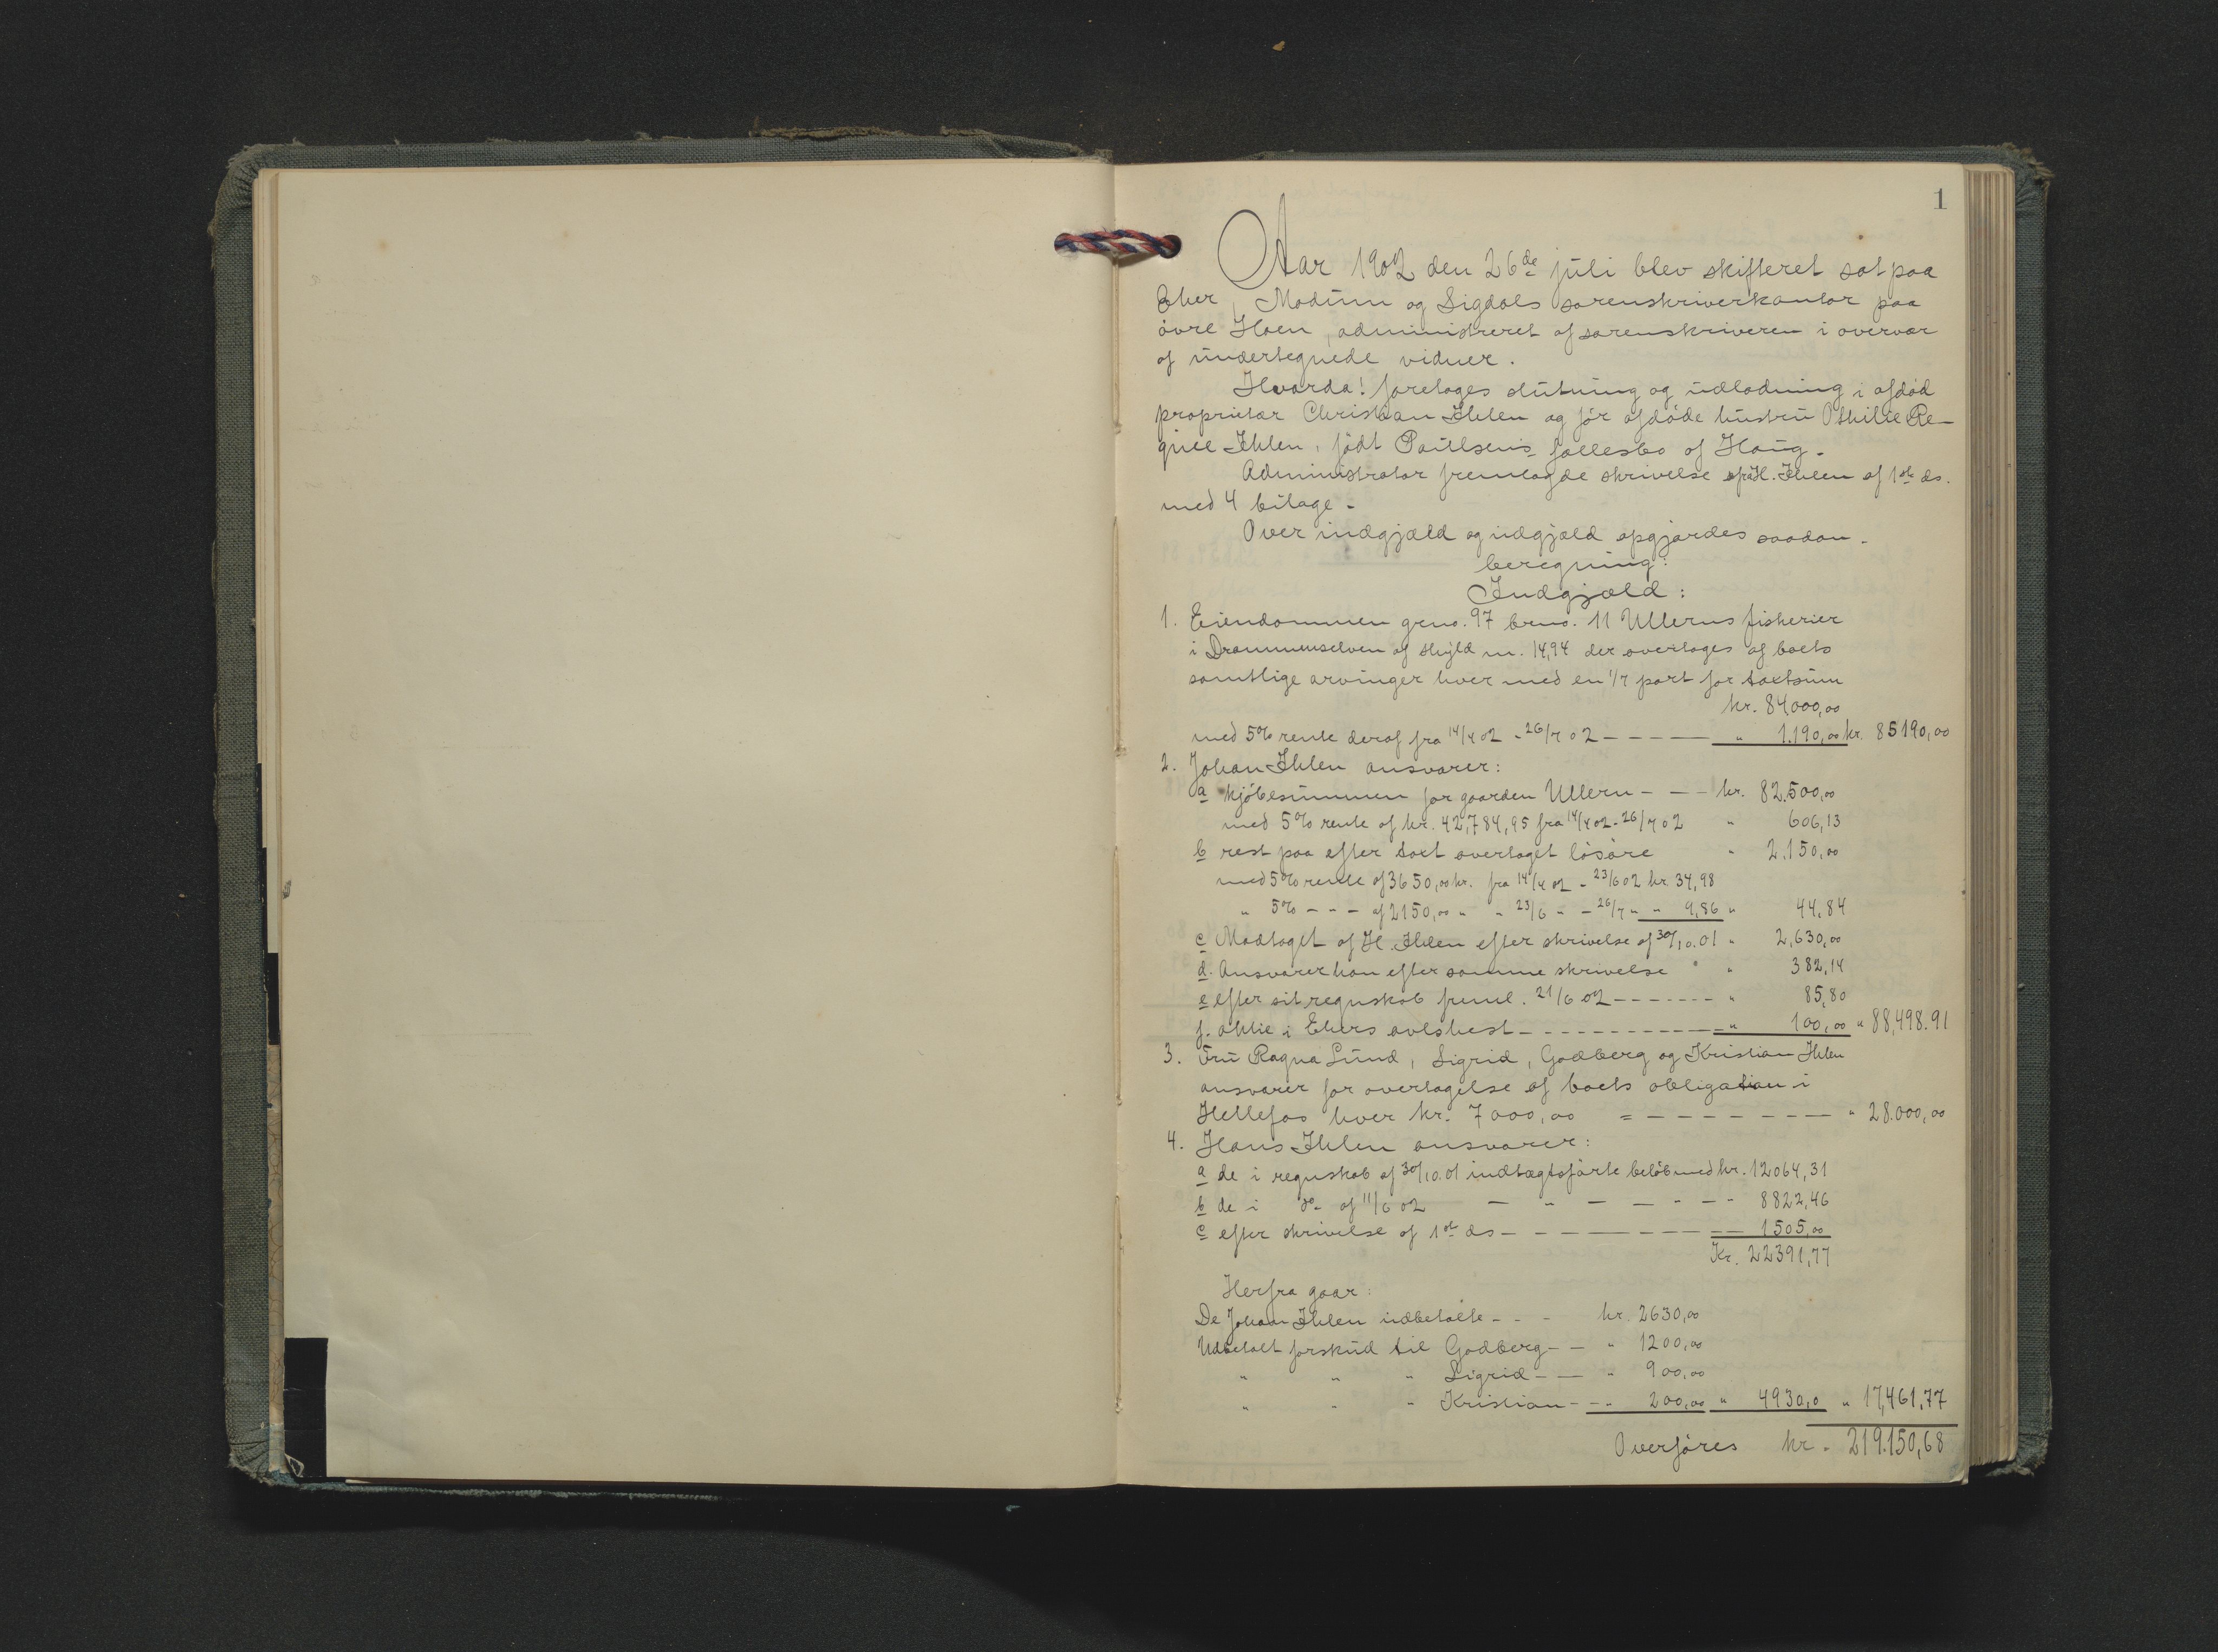 1
Aar 1902 den 26de juli blev skifteret sat paa
Eker, Modum og Sigdals sorenskriverkontor paa
övre Hoen, administreret af sorenskriveren i overvær
af undertegnede vidner.
Hvorda! foretages slutning og udlodning i afdöd
proprietær Christian Ihlen og för afdöde hustru Othilie Re-
gine Ihlen, födt Paulsens fællesbo af Haug.
Administrator fremlagde skrivelse fra H. Ihlen af 1ste ds.
med 4 bilage.
Over indgjæld og udgjæld opgjordes saadan
beregning:
Indgjæld:
1. Eiendommen gno. 97 bno. 11 Ullerns fiskerier
i Drammenselven af skyld m. 14,94 der overtages af boets
samtlige arvinger hver med en 1/7 part for taxtsum
kr. 84000,00
med 5% rente deraf fra 14/4 02 - 26/7 02 - - - - - " 1.190,00 kr. 85190,00
2. Johan Ihlen ansvarer:
a kjöbesummen for gaarden Ullern - - - kr. 82.500,00
med 5% rente af kr. 42,784,95 fra 14/4 02 - 26/7 02 " 606,13
b rest paa efter taxt overtaget lösöre " 2.150,00
med 5% rente af 3650,00 kr. fra 14/4 02 - 23/6 02 kr. 34,98
" 5% - - - af 2150,00 " " 23/6 " - 26/7 " " 9,86 " 44,84
c Modtaget af H. Ihlen efter skrivelse af 30/10.01 " 2,630,00
d. Ansvarer han efter samme skrivelse " " 382,14
e efter sit regnskab freml. 21/6 02 - - - - - - - " 85,80
f. aktie i Ekers avlshest - - - - - - - - - - - " 100,00 " 88,498.91
3. Fru Ragna Lund, Sigrid, Godberg og Kristian Ihlen
ansvarer for overtagelse af boets obligation i
Hellefos hver kr. 7000,00 = - - - - - - - - - " 28.000,00
4. Hans Ihlen ansvarer:
a de i regnskab af 30/10.01 indtægtsförte belöb med kr. 12064,31
b de i do. af 11/6 02 - " - - - - - 8822,46
c efter skrivelse af 1ste ds - - - - - - - - - 1505,00
Kr. 22391,77
Herfra gaar:
De Johan Ihlen udbetalte - - - kr. 2630,00
Udbetalt forskud til Godberg - - " 1200,00
" " " Sigrid - - " 900,00
" " " Kristian - - " 200,00 " 4930,0 " 17,461,77
Overföres kr. 219.150,68